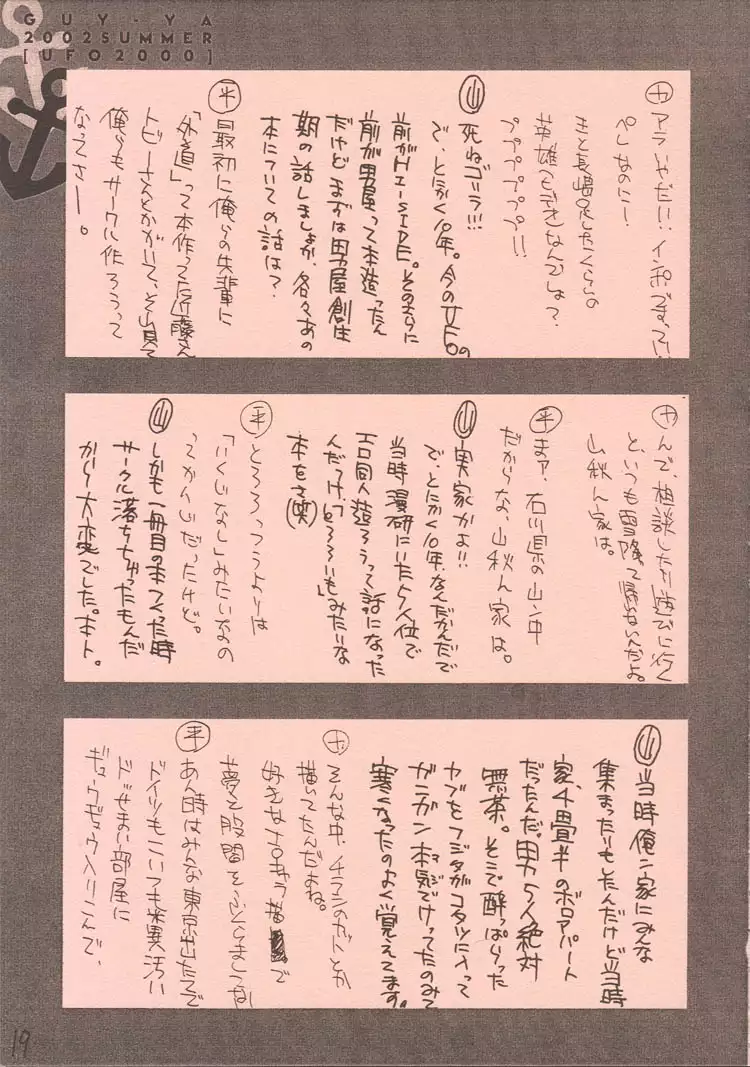 GUY-YA
2002SUMMER
[UFO2000]
㊉アラいやだに、インポですってい
ペしゃのにー
きっと長嶋足したくらいの
英雄ってどきなんでしょ?
ププププププ!!
㊤死ねゴリラ!!!
で、とにかく10年。今のUFOの
前がHI-SIDE。そのまえに
前が男屋って本造ったん
だけど、まずは男屋創生
期の話しましょか、各々あの
本についての話は?
㊥最初に俺らの先輩に
「外道」って本作って近藤さん
トビーさんとかがいて、それ見て
俺らもサークル作ろうって
なってさー。
㊉んで、相談したり遊びに行く
と、いつも雪降って帰れないんだよ。
山秋ん家は。
㊥まァ、石川県の山ン中
だからな、山秋ん家は。
㊤実家かよ!!
で、とにかく10年、なんだかんだで
当時漫研にいた5人位で
エロ同人造ろうって話になった
んだっけ、「とろろいも」みたいな
本をさ(笑)
㊥とろろってうよりは
「いくじなし」みたいなの
ってかんじだったけど。
㊤しかも一冊目の本つくった時
サークル落ちちゃったもんだ
から大変でした。ホント。
㊤当時俺ン家にみんな
集まったりもしたんだけど当時
家、4畳半のボロアパート
だったんだ。男5人絶対
無茶。そこで酔っぱらった
ヤブをフジタがコタツに入って
ガンガン本気でけってたのみて
マジ
寒くなったのよく覚えてます。
㊉そんな中、チアシのガイとか
描いてたんだよね。
好きなキャラ描いて
夢と股間をふくらましてな
㊥あん時はみんな東京出たてで
ドイツもこいつも小異汚い
ドせまい部屋に
ギュウギュウ入りこんで、
19